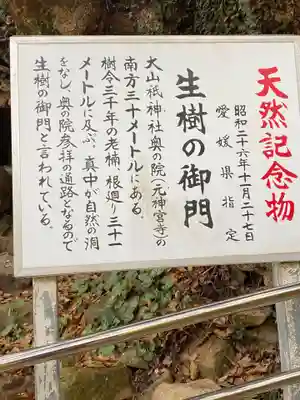 天然記念物
昭和二十六年十一月二十七日
愛媛県指定
生樹の御門
大山祇神社奥の院(元神宮寺)の
南方三十メートルにある。
樹令三千年の老楠、根廻り三十一
メートルに及ぶ、真中が自然の洞
をなし、奥の院彦拝の通路となるので
生樹の御門と言われている。